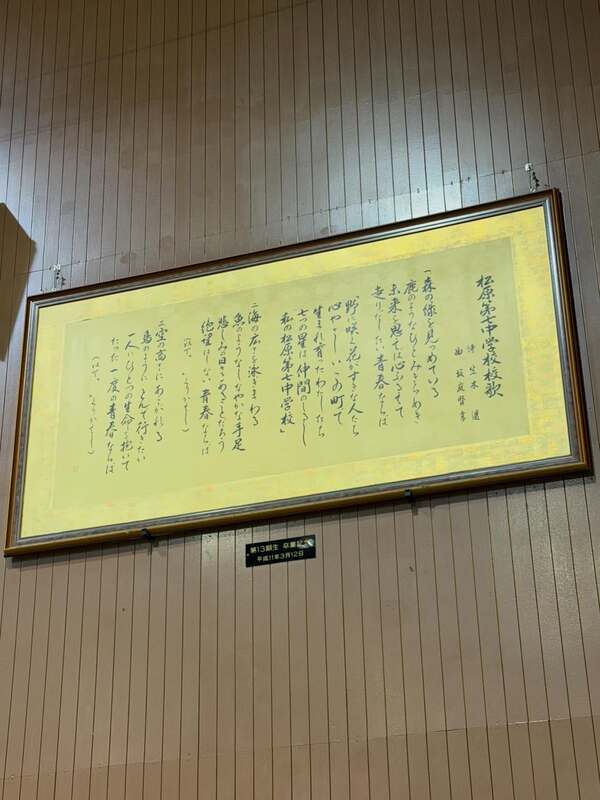 松原第七中学校校歌
詩 笠木 透
曲 坂庭賢享
一 森の緑を見つめている
鹿のようなひとみときらめき
未来を思ては心ふるわせて
走りだしたい青春ならば
"野に咲く花がすきな人たち
心やさしいこの町で
生まれ育ったわたしたち
七つの星は仲間のしるし
私の松原第七中学校"
二 海の広さを泳ぎまわる
魚のようなしなやかな手足
悲しみの日もあることだろう
絶望はしない青春ならば
(以下、くりかえし)
三 空の高さにあこがれる
鳥のようにとんで行きたい
一人にひとつの生命を抱いて
たった一度の青春ならば
(以下、くりかえし)
第13期生 卒業記念
平成11年3月12日